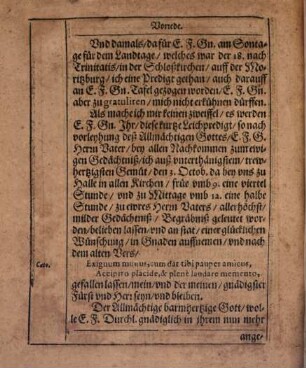 Vorrede.
Vnd damals / da für E. F. Gn. am Sonta-
ge für dem Landtage / welches war der 18. nach
Trinitatis / in der Schloßkirchen / auff der Mo-
ritzburg / ich eine Predigt gethan / auch darauff
an E. F. Gn. Tafel gezogen worden / E. F. Gn.
aber zu gratuliren / mich nicht erkühnen dürffen.
Als mache ich mir keinen zweiffel / es werden
E. F. Gn. Ihr / diese kurtze Leichpredigt / so nach
vorleyhung deß Allmächtigen Gottes / E. F. G.
Herrn Vater / bey allen Nachkommen zum ewi-
gen Gedächtnüß / ich auß vnterthänigstem / trew-
hertzigsten Gemüt / den 3. Octob. da bey vns zu
Halle in allen Kirchen / früe vmb 9. eine viertel
Stunde / vnd zu Mittage vmb 12. eine halbe
Stunde / zu ewres Herrn Vaters / allerhöchst-
milder Gedächtnüß / Begräbnüß geleutet wor-
den / belieben lassen / vnd an stat / einer glücklichen
Wünschung / in Gnaden auffnemen / vnd nach
dem alten Vers /
Cato.
Exiguum munus, cum dat tibi pauper amicus,
Accipito placidè, & plenè laudare memento,
gefallen lassen / mein / vnd der meinen / gnädigster
Fürst vnd Herr seyn / vnd bleiben.
Der Allmächtige barmhertzige Gott / wol-
le E. F. Durchl. gnädiglich in ihrem nun mehr
ange-